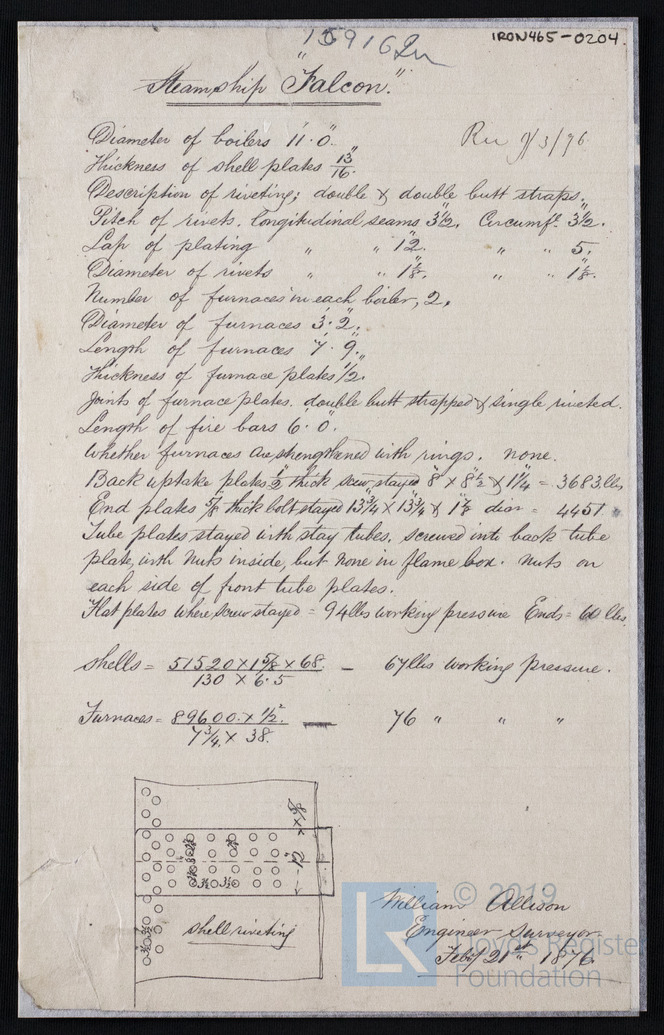 15916
IRON465-0204
Steamship "Falcon."
Rec 9/3/76
Diameter of boilers 11'.0".
Thickness of shell plates 13/16".
Description of riveting; double & double butt straps.
Pitch of rivets. Longitudinal seams 3½". Circumf. 3½".
Lap of plating " " 12". " " 5".
Diameter of rivets " " 1⅛". " " 1⅛".
Number of furnaces in each boiler, 2.
Diameter of furnaces 3'.2".
Length of furnaces 7'.9".
Thickness of furnace plates ½".
Joints of furnace plates. double butt strapped & single riveted.
Length of fire bars 6'.0".
Whether furnaces are strengthened with rings. none.
Back uptake plates ½" thick screw stayed 8" × 8½" × 1¼" = 3683 lbs
End plates ⅝" thick bolt stayed 13¾" × 13¾" × dia = 4451
Tube plates stayed with stay tubes, screwed into back tube
plate, with nuts inside, but none in flame box. nuts on
each side of front tube plates.
Flat plates where screw stayed = 94 lbs working pressure Ends = 60 lbs.
Shells = 51520 × 1⅝ × 68. — 67 lbs working pressure.
130 × 6.5
Furnaces = 89600 × ½". — 76 " " "
7¾ × 38.
shell riveting
William Allison
Engineer Surveyor
Feby 21st 1876
© 2019
LR Lloyd's Register
Foundation